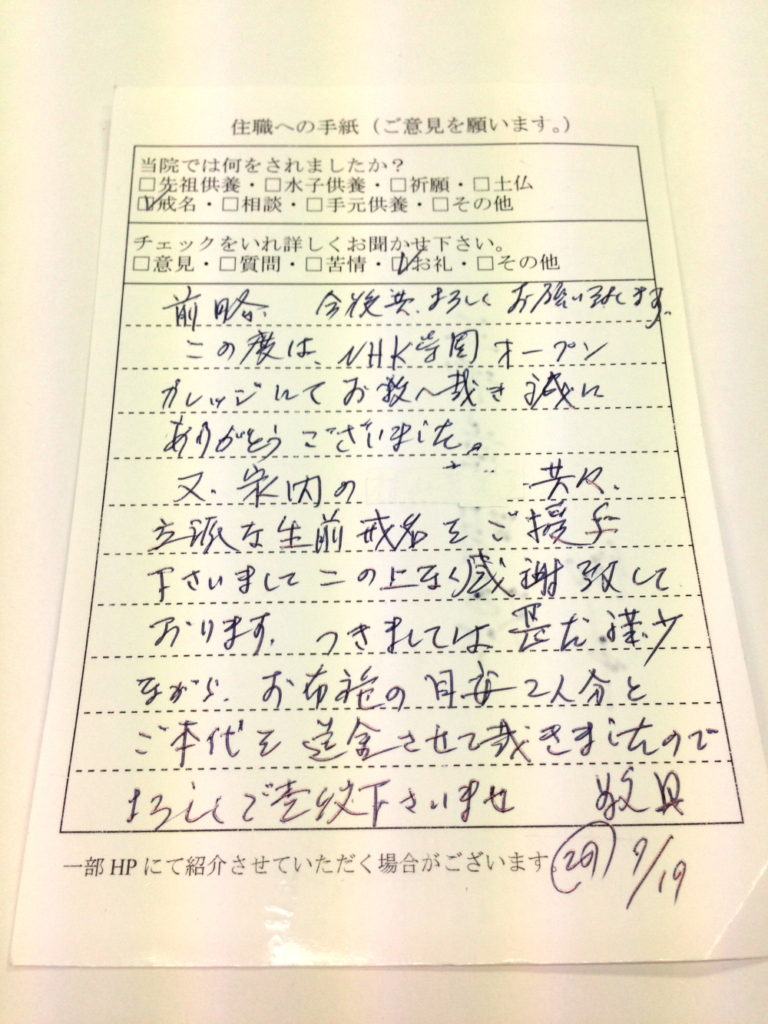 住職への手紙（ご意見を願います。）
当院では何をされましたか？
□先祖供養・□水子供養・□祈願・□土仏
☑戒名・□相談・□手元供養・□その他
チェックをいれ詳しくお聞かせ下さい。
□意見・□質問・□苦情・☑お礼・□その他
前略 今後共、よろしくお願い致します。
この度は、NHK学園オープン
カレッジにてお教へ戴き誠に
ありがとうございました。
又、家内の 共々、
立派な生前戒名をご授与
下さいましてこの上なく感謝致して
おります。つきましては甚だ僅少
ながら、お布施の目安2人分と
ご本代を送金させて戴きましたので
よろしくご査収下さいませ 敬具
一部HPにて紹介させていただく場合がございます。
29 9/19